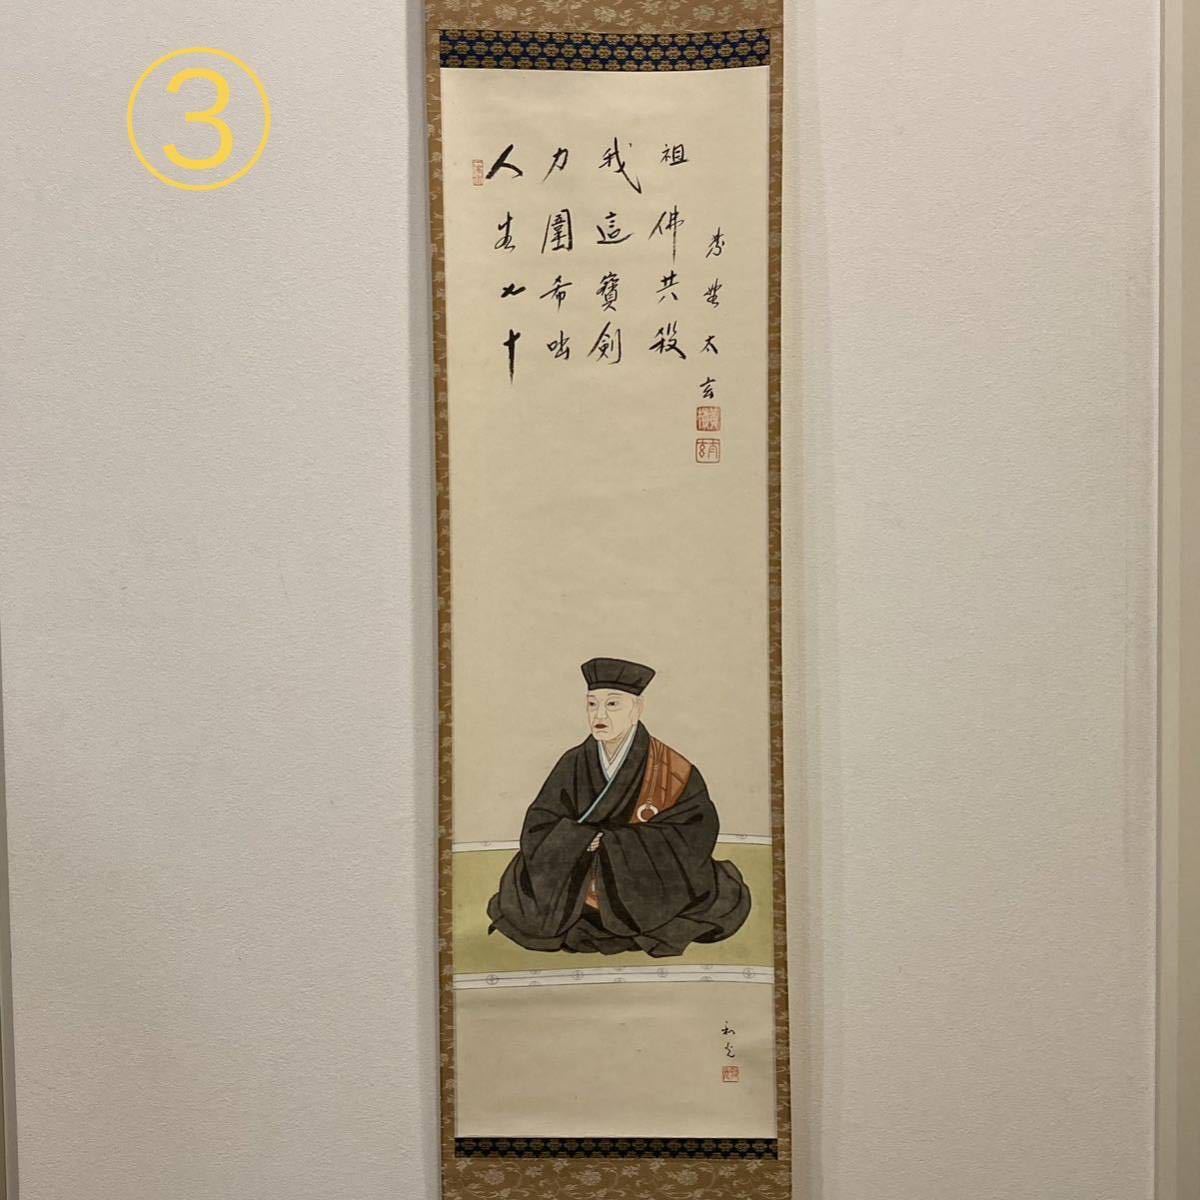 ③
人生七十
力圍希咄
我這寶剣
祖佛共殺
紫埜太玄
和光